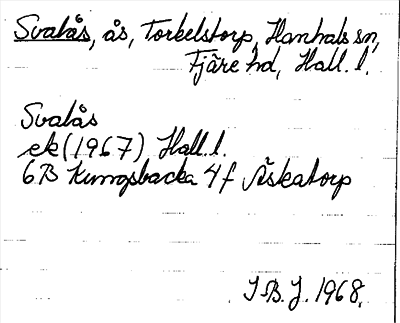 Svalås, ås, Torkelstorp, Hanhals sn,
Fjäre hd, Hall. l.
Svalås
ek (1967) Hall. l.
6B Kungsbacka 4f Åskatorp
I.B.J. 1968.